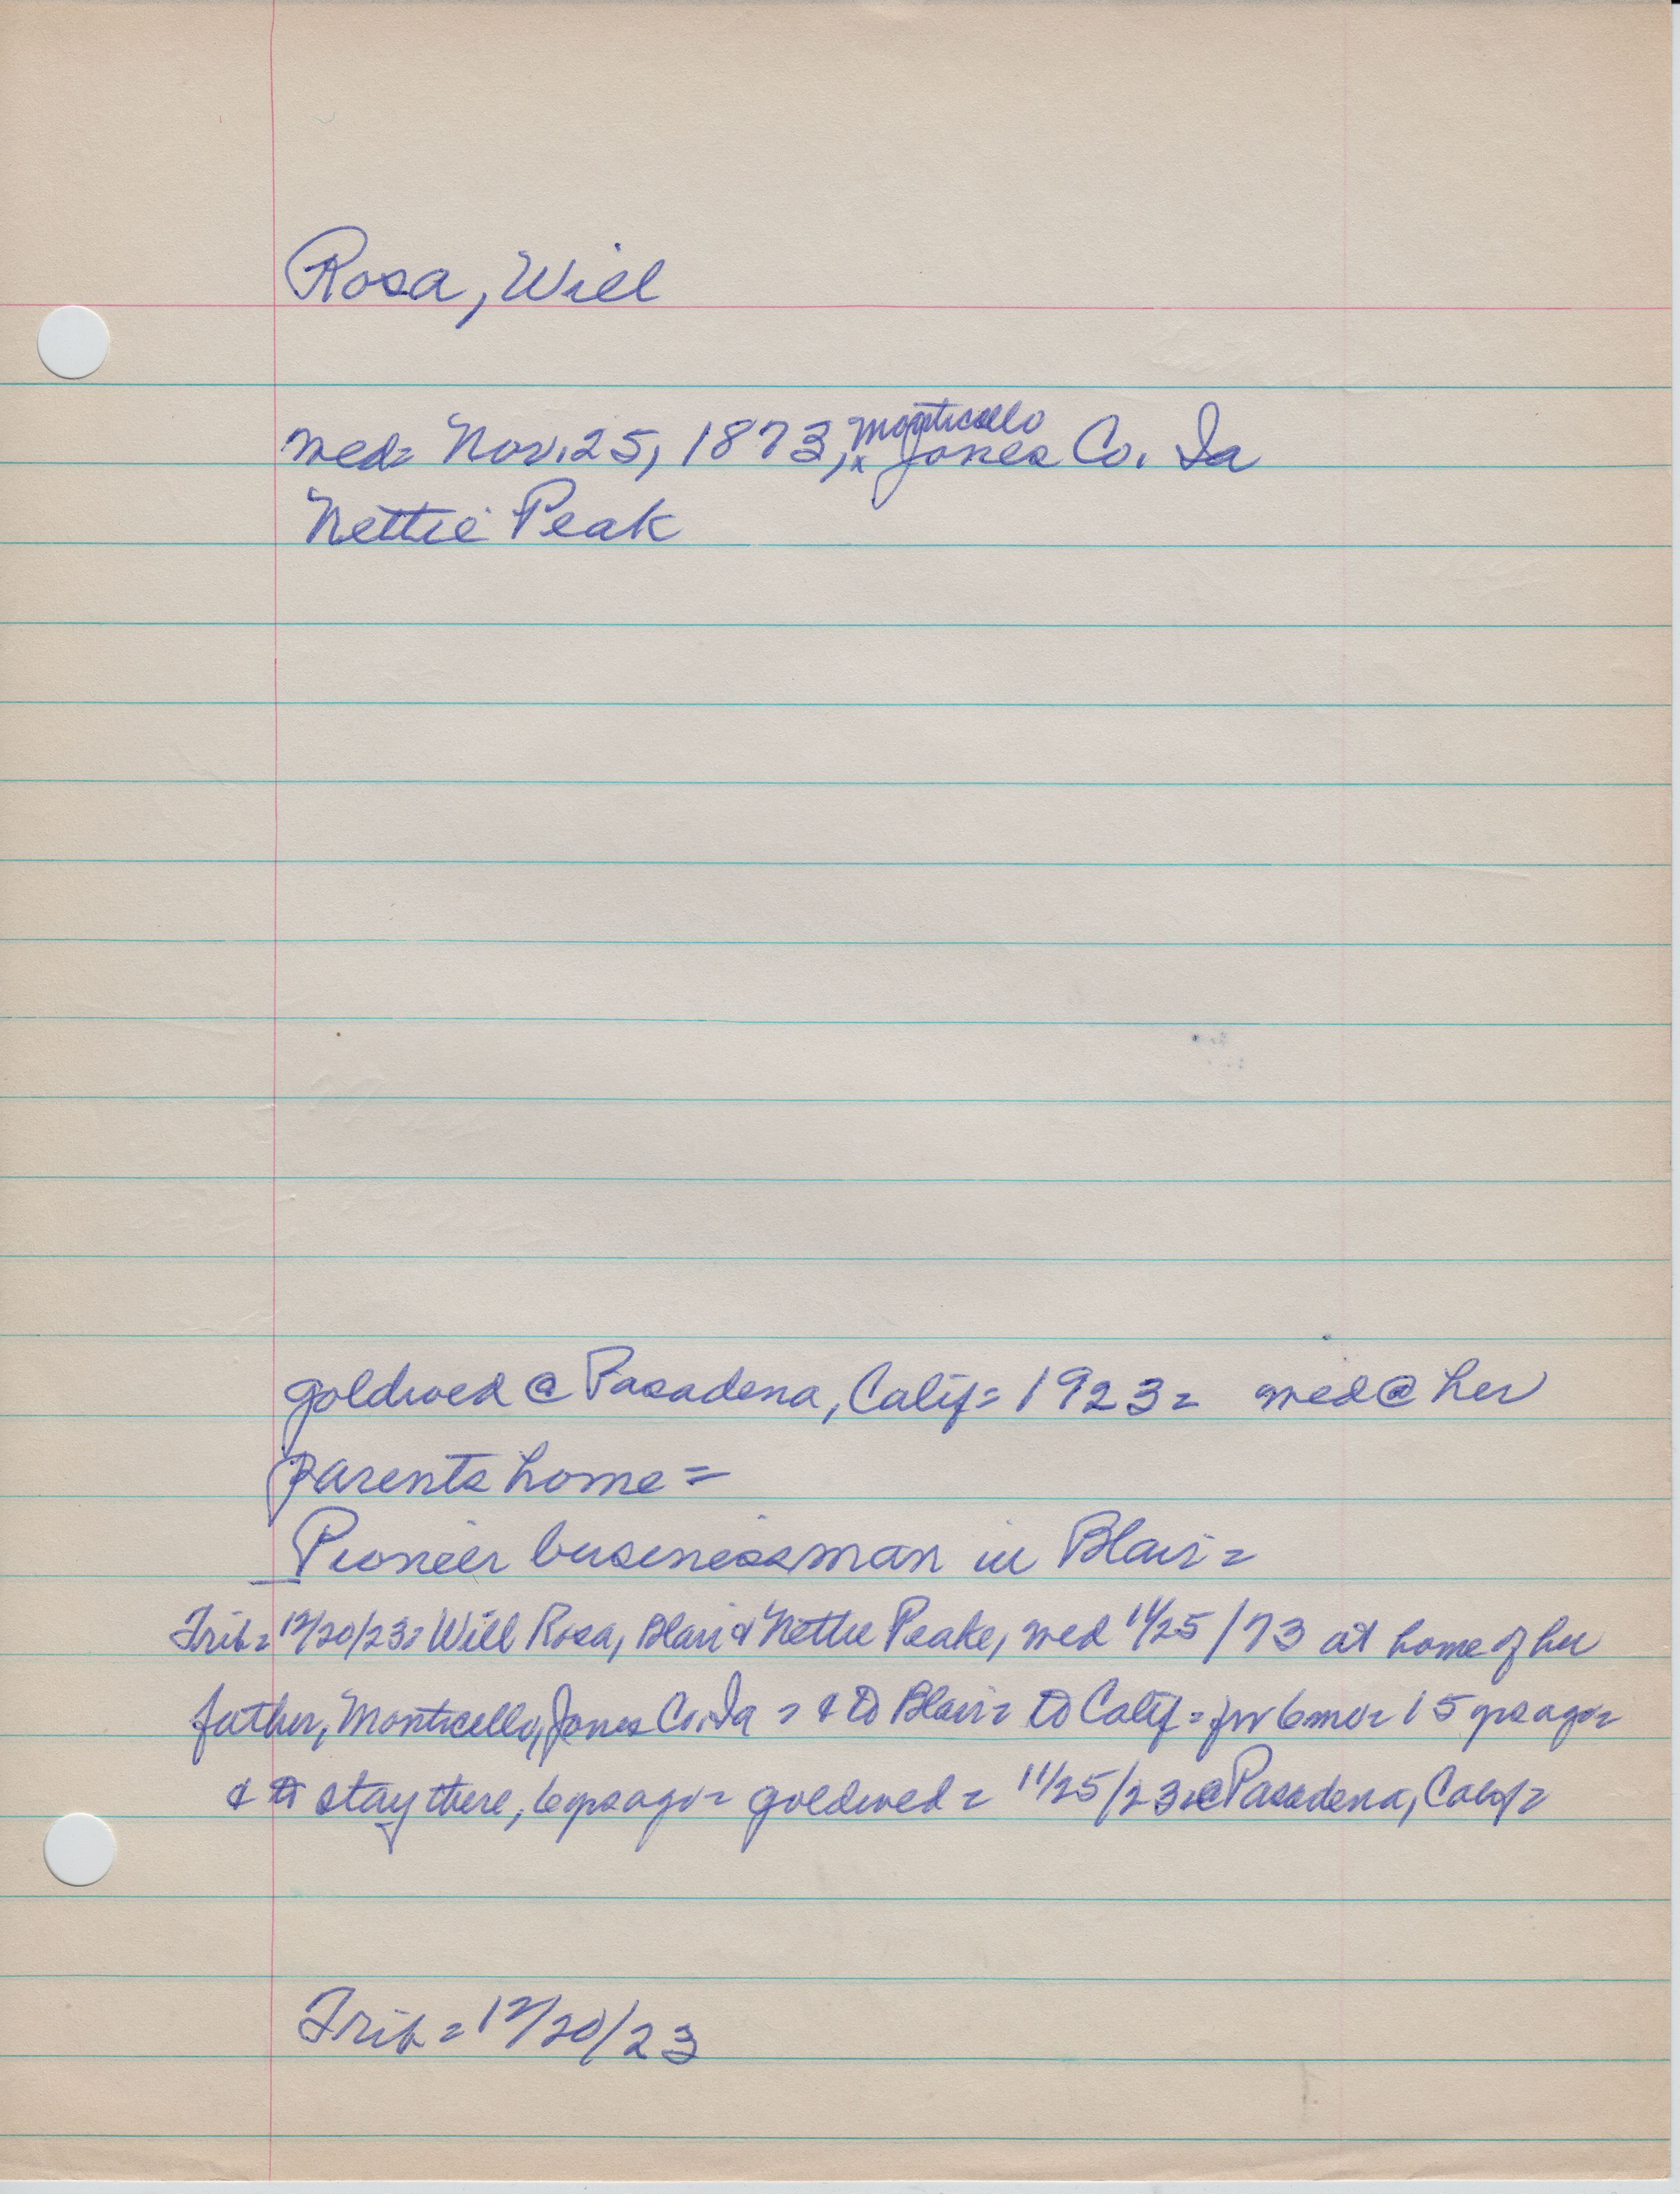 Rosa, Will
wed= Nov. 25, 1873, x Monticello Jones Co. Ia
Nettie Peak
goldwed @ Pasadena, Calif= 1923= wed @ her
parents home=
Pioneer businessman in Blair=
Trib= 12/20/23= Will Rosa, Blair & Nettie Peake, wed 11/25/73 at home of her
father, Monticello, Jones Co. Ia = & to Blair= to Calif= for 6 mo= 15 yrs ago=
& to stay there, 6 yrs ago= goldwed= 11/25/23= @ Pasadena, Calif=
Trib= 12/20/23